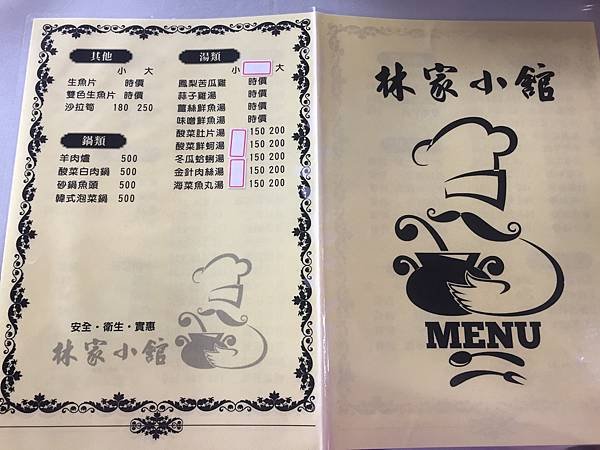 其他
小 大
生魚片 時價
雙色生魚片 時價
沙拉筍 180 250
鍋類
羊肉爐 500
酸菜白肉鍋 500
砂鍋魚頭 500
韓式泡菜鍋 500
湯類
小 大
鳳梨苦瓜雞 時價
蒜子雞湯 時價
薑絲鮮魚湯 時價
味噌鮮魚湯 時價
酸菜肚片湯 150 200
酸菜鮮蚵湯 150 200
冬瓜蛤蜊湯 150 200
金針肉絲湯 150 200
海菜魚丸湯 150 200
安全・衛生・實惠
林家小館
林家小館
MENU